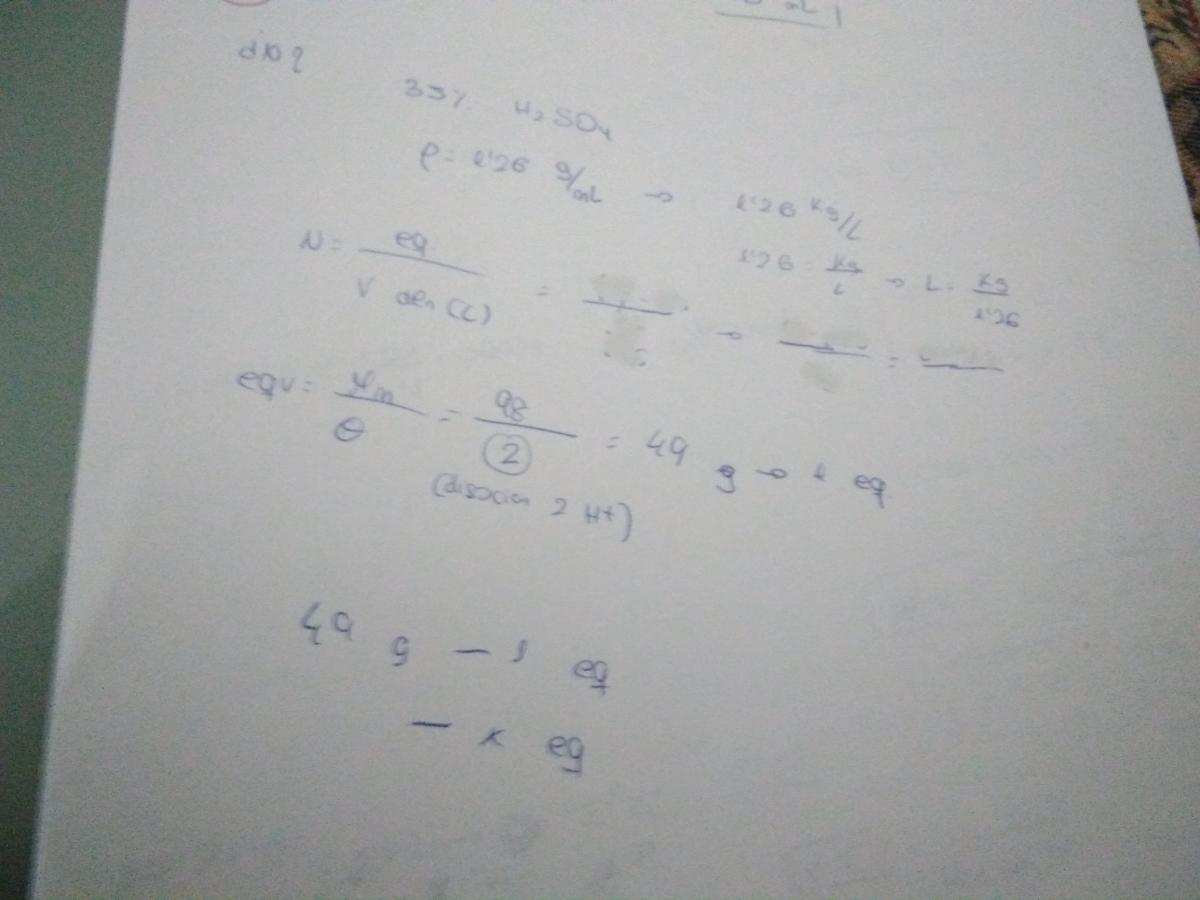 35% H₂SO₄
ρ = 1'26 g/mL → 1'26 Kg/L
1'26 = Kg/L → L = Kg/1'26
N = eq/V den (L) =
eqv = Ψm/θ = 98/2 = 49 g → 1 eq
(disocian 2 H+)
49 g — 1 eq
— x eq